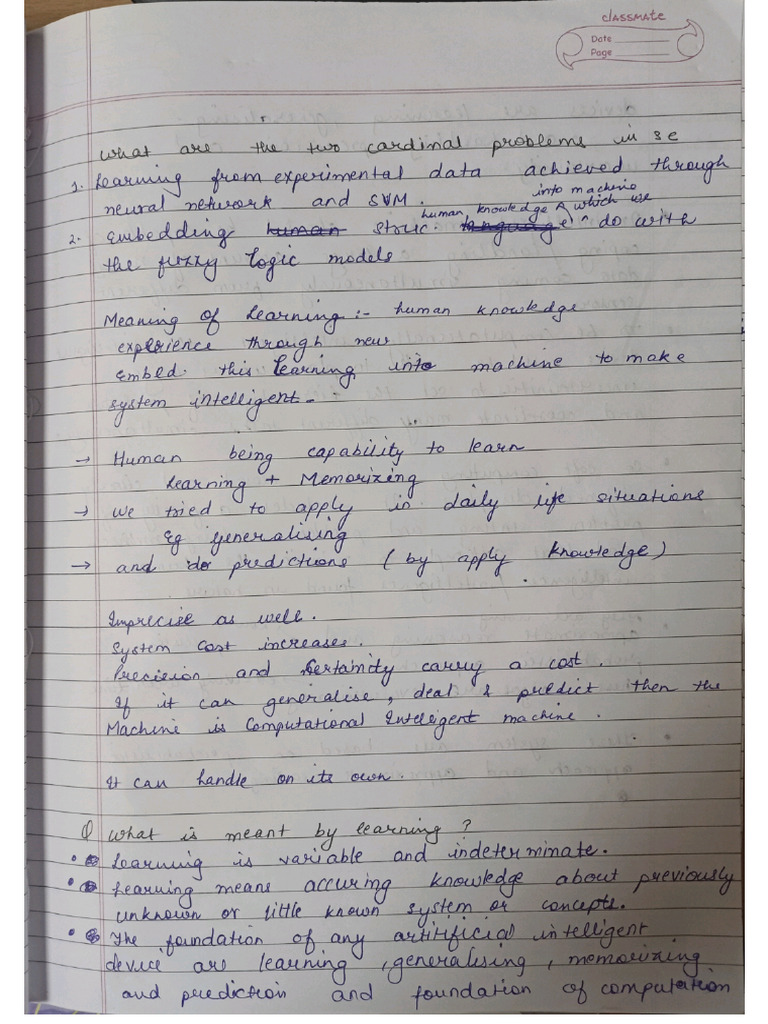 classmate
Date
Page
what are the two cardinal problems in se
1. Learning from experimental data achieved through
neural network and SVM.
into machine
human knowledge ^ which we
2. Embedding human struc. language ^ do with
the fuzzy logic models
Meaning of Learning :- human knowledge
experience through new
Embed. this learning into machine to make
system intelligent.
→ Human being capability to learn
Learning + Memorizing
→ we tried to apply in daily life situations
Eg generalising
→ and do predictions ( by apply knowledge )
Imprecise as well.
System cost increases.
Precision and Certainity carry a cost.
If it can generalise, deal & predict then the
Machine is Computational Intelligent machine.
It can handle on its own.
Q what is meant by learning ?
• Learning is variable and indeterminate.
• Learning means accuring knowledge about previously
unknown or little known system or concepts.
• The foundation of any artificial intelligent
device are learning, generalising, memorizing
and prediction and foundation of computation